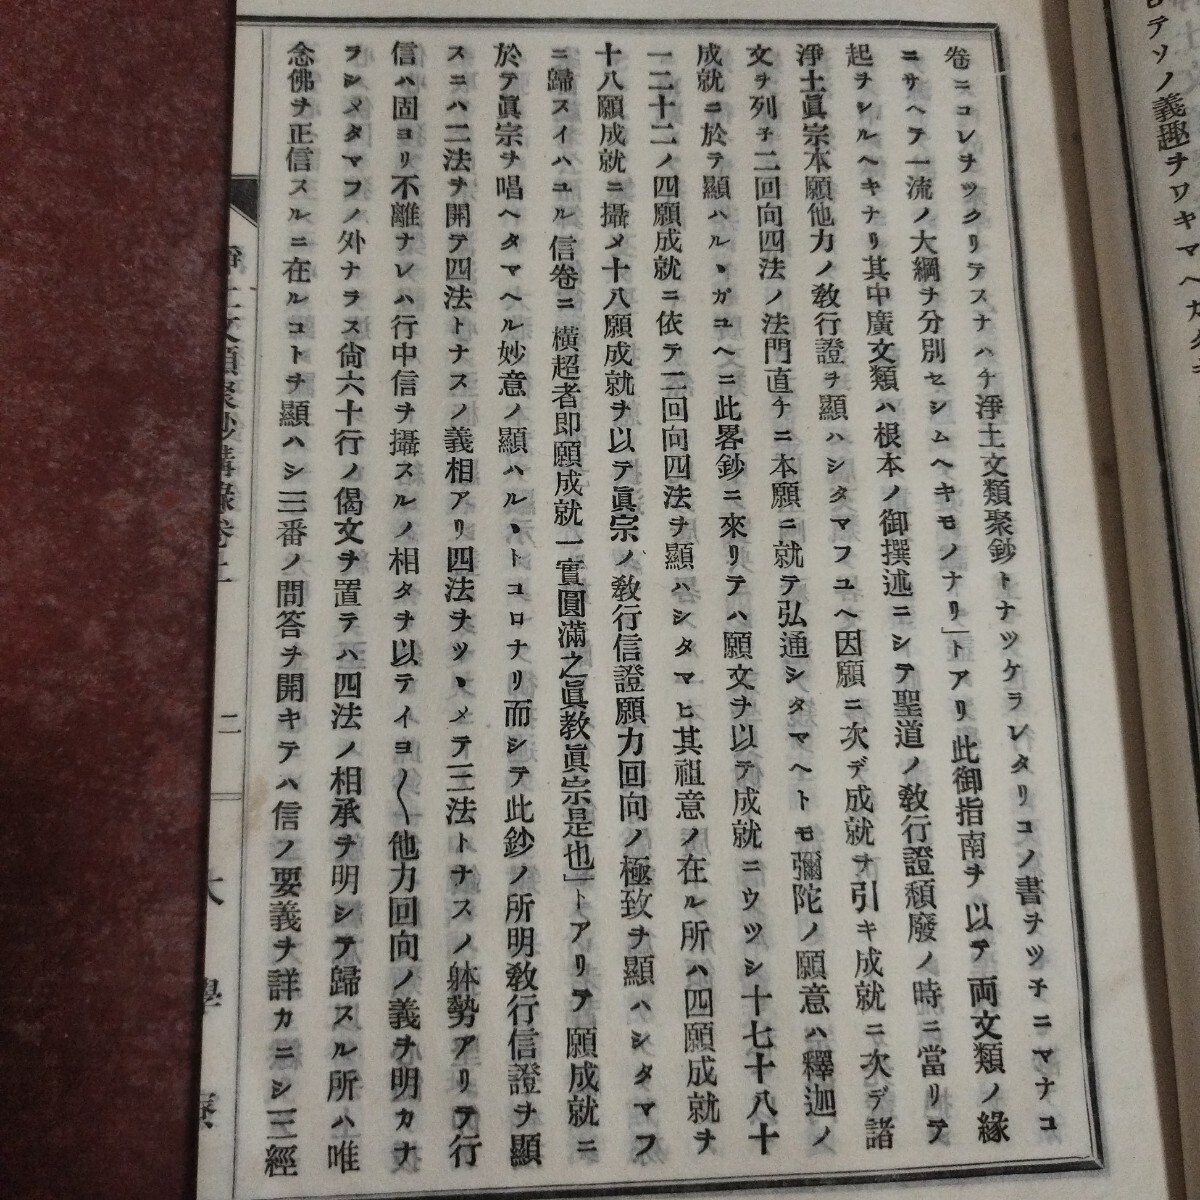 卷ニコレヲツクリテスナハチ淨土文類聚鈔トナツケラレタリコノ書ヲツ子ニマナコ
ニサヘテ一流ノ大綱ヲ分別セシムヘキモノナリ」トアリ此御指南ヲ以テ両文類ノ緣
起ヲシルヘキナリ其中廣文類ハ根本ノ御撰述ニシテ聖道ノ敎行證頽廢ノ時ニ當リテ
淨土眞宗本願他力ノ敎行證ヲ顯ハシタマフユヘ因願ニ次デ成就ヲ引キ成就ニ次デ諸
文ヲ列子二回向四法ノ法門直チニ本願ニ就テ弘通シタマヘトモ彌陀ノ願意ハ釋迦ノ
成就ニ於テ顯ハルヽガユヘニ此畧鈔ニ來リテハ願文ヲ以テ成就ニウツシ十七十八十
一二十二ノ四願成就ニ依テ二回向四法ヲ顯ハシタマヒ其祖意ノ在ル所ハ四願成就ヲ
十八願成就ニ攝メ十八願成就ヲ以テ眞宗ノ敎行信證願力回向ノ極致ヲ顯ハシタマフ
ニ歸スイハユル信卷ニ橫超者即願成就一實圓滿之眞教眞宗是也」トアリテ願成就ニ
於テ眞宗ヲ唱ヘタマヘル妙意ノ顯ハルヽトコロナリ而シテ此鈔ノ所明敎行信證ヲ顯
スニハ二法ヲ開テ四法トナスノ義相アリ四法ヲツヽメテ三法トナスノ躰勢アリテ行
信ハ固ヨリ不離ナレハ行中信ヲ攝スルノ相タヲ以テイヨ〱他力回向ノ義ヲ明カナ
ラシメタマフノ外ナラス尙六十行ノ偈文ヲ置テハ四法ノ相承ヲ明シテ歸スル所ハ唯
念佛ヲ正信スルニ在ルコトヲ顯ハシ三番ノ問答ヲ開キテハ信ノ要義ヲ詳カニシ三經
二
大學寮
義趣ヲワキマヘ